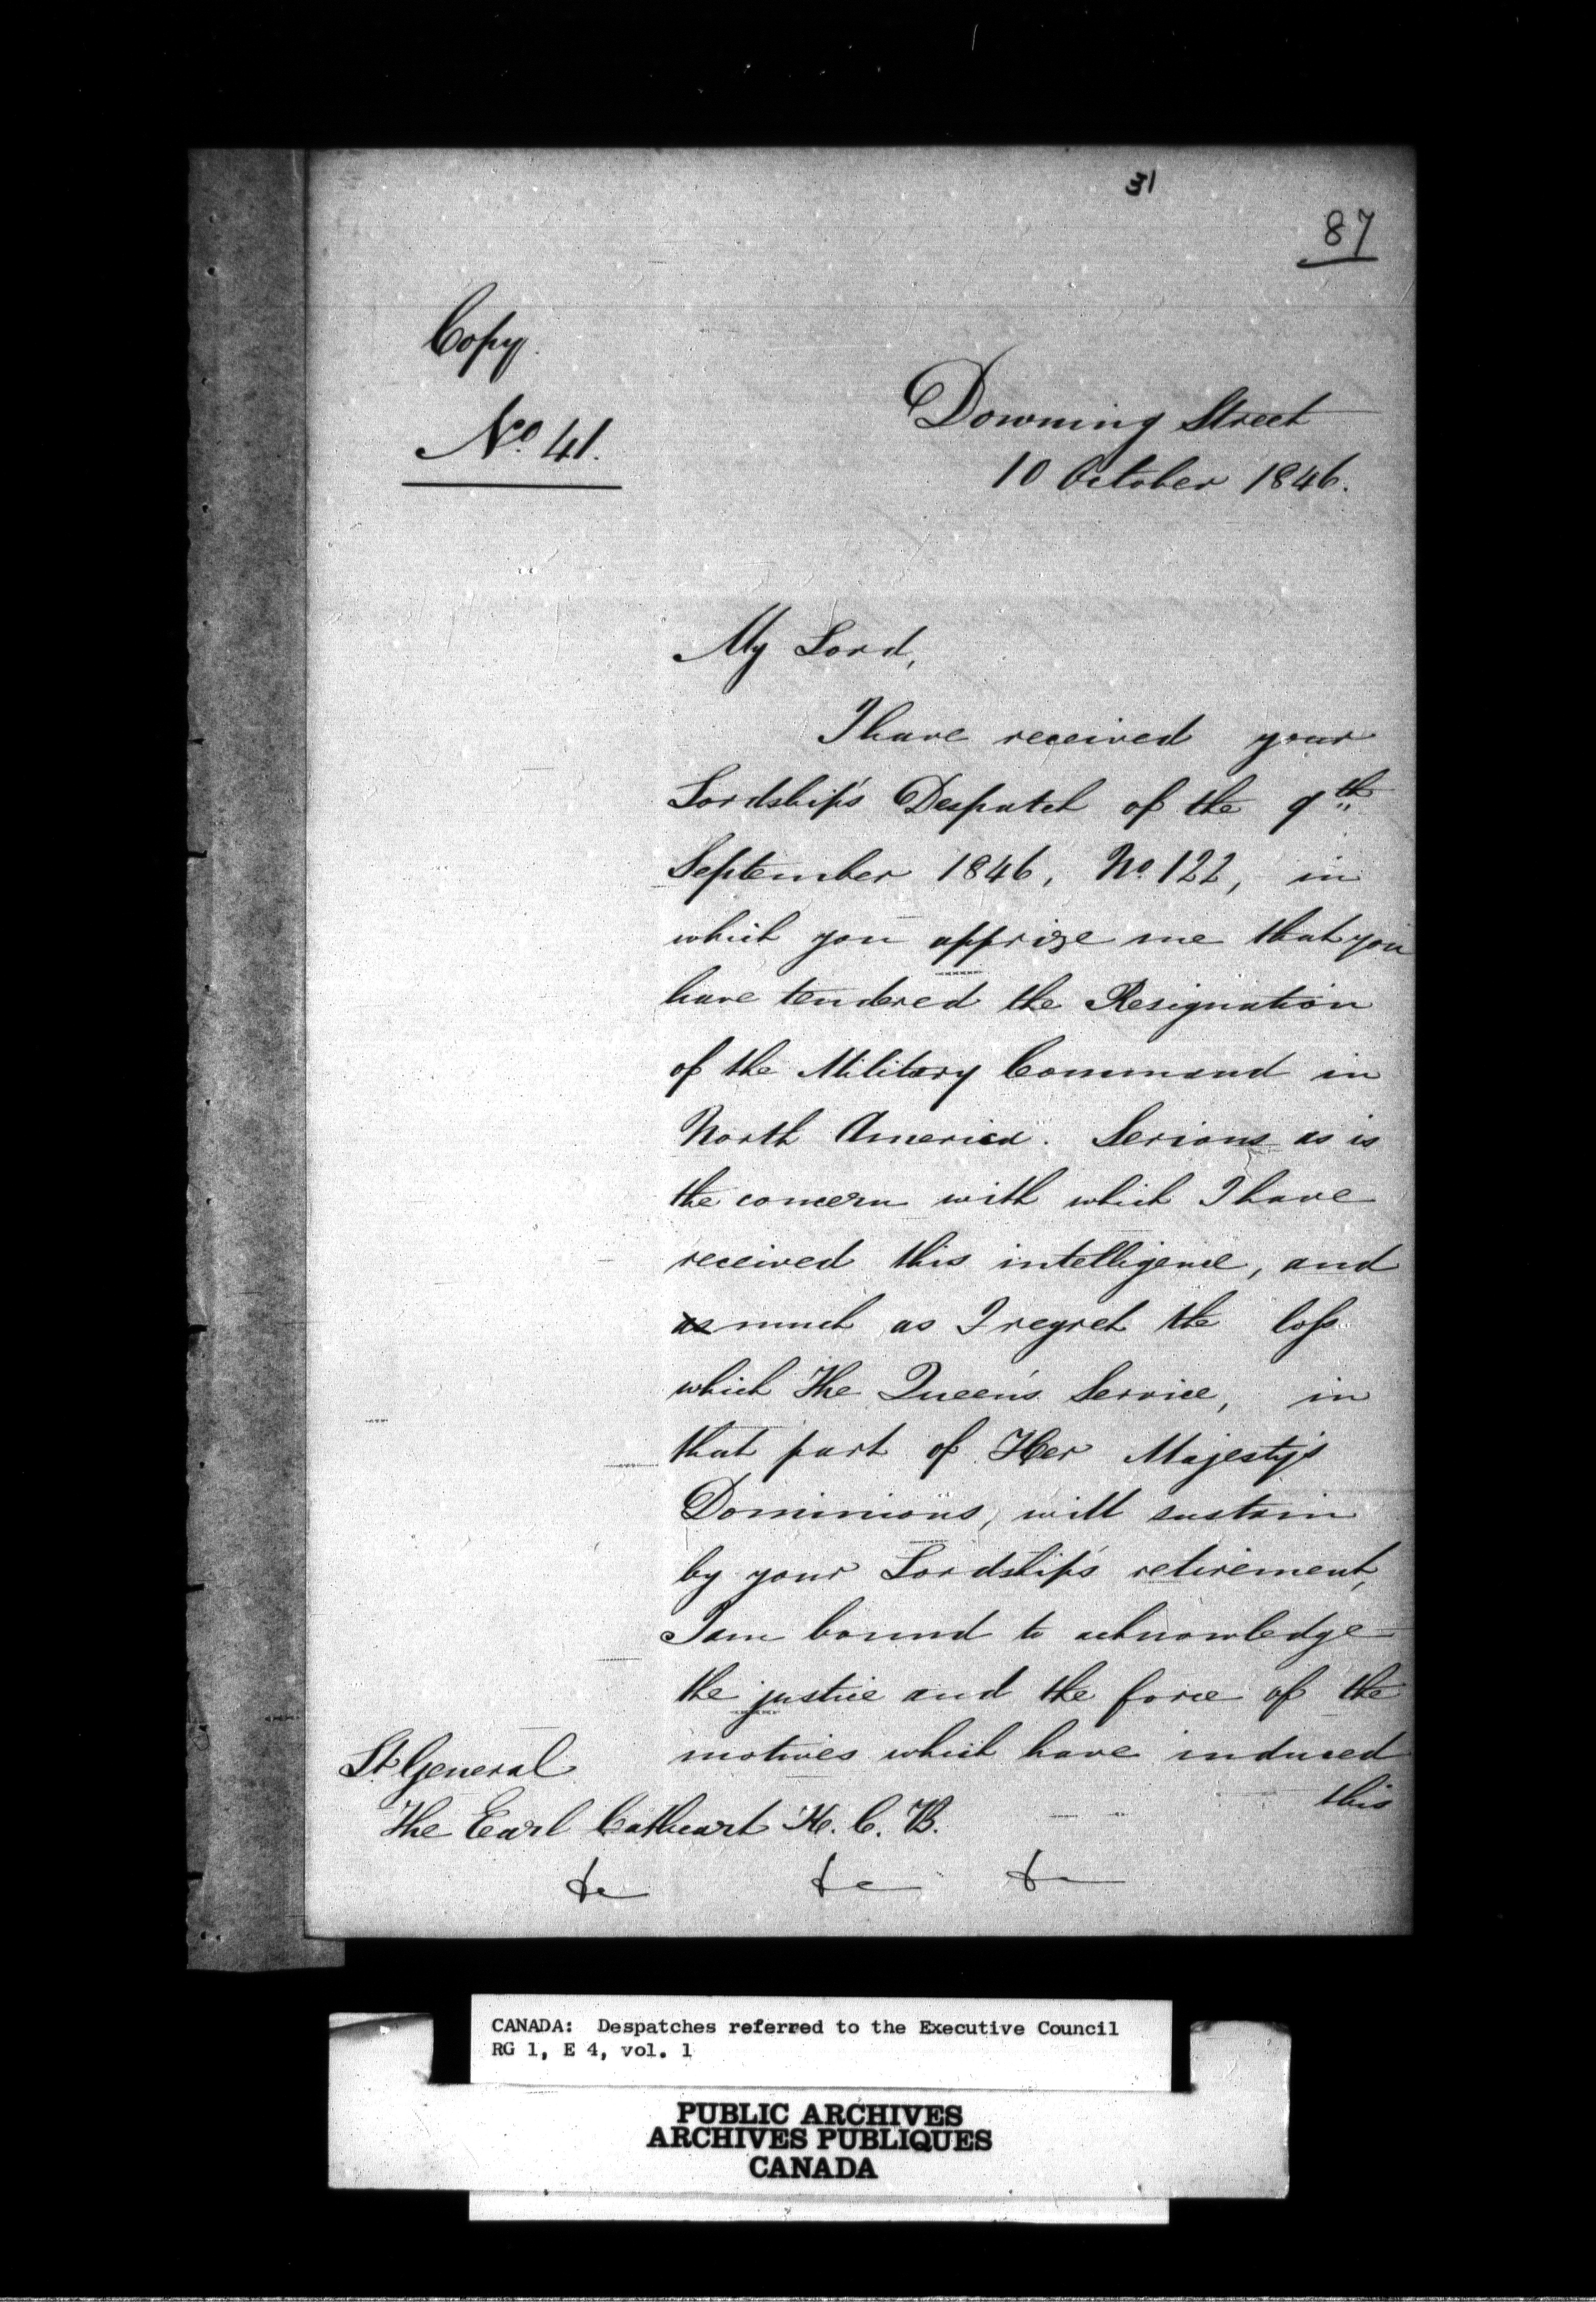 31
87
Copy.
No. 41.
Downing Street
10 October 1846.
My Lord,
I have received your
Lordship's Despatch of the 9th
September 1846, No. 122, in
which you apprize me that you
have tendered the Resignation
of the Military Command in
North America. Serious as is
the concern with which I have
received this intelligence, and
as much as I regret the loss
which The Queen's Service, in
that part of Her Majesty's
Dominions, will sustain
by your Lordship's retirement,
I am bound to acknowledge
the justice and the force of the
motives which have induced
this
Lt General
The Earl Cathcart K.C.B.
&c &c &c
CANADA: Despatches referred to the Executive Council
RG 1, E 4, vol. 1
PUBLIC ARCHIVES
ARCHIVES PUBLIQUES
CANADA